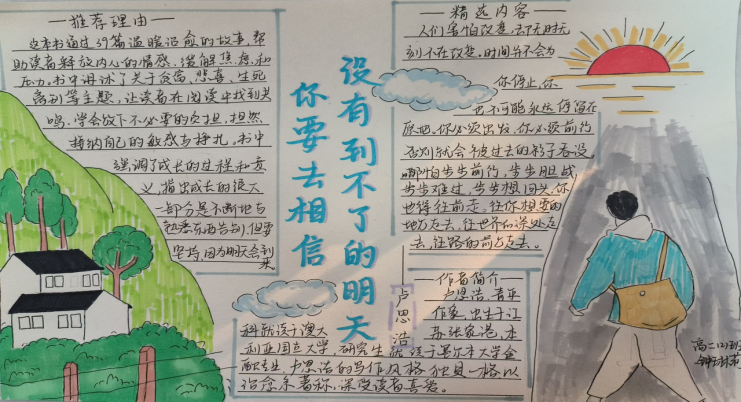 推荐理由
这本书通过37篇温暖治愈的故事，帮
助读者释放内心的情感，缓解焦虑和
压力。书中讲述了关于成长、悲喜、生死
离别等主题，让读者在阅读中找到共
鸣，学会放下不必要的负担，坦然
接纳自己的敏感与挣扎。书中
强调了成长的过程和意
义，指出成长的很大
一部分是不断地与
熟悉东西告别，但要
坚持，因为明天会到
来
你要去相信
没有到不了的明天
卢思浩
精选内容
人们害怕改变，每天时时无
刻不在改变，时间并不会为
你停止，你
也不可能永远停留在
原地。你必须出发，你必须前行
否则就会被过去的影子吞没。
哪怕步步前行，步步胆战
步步难过，步步想回头，你
也得往前走，往你想要的
地方走去，往世界的深处走
去，往路的前方走去。
作者简介
卢思浩，青年
作家，出生于江
苏张家港，本
科就读于澳大
利亚国立大学，研究生就读于墨尔本大学金
融专业，卢思浩的写作风格独具一格以
治愈系著称，深受读者喜爱。
高二(2)班